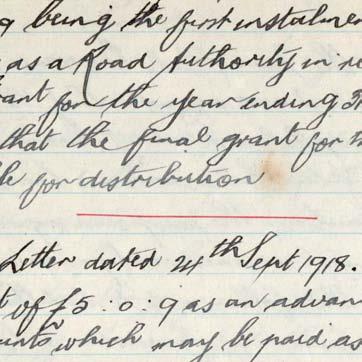 being the first instalmen
as a Road Authority in re
rant for the year ending 3
that the final grant for
le for distribution
Letter dated 24th Sept 1918.
t of £5 : 0 : 9 as an advan
unts which may be paid as